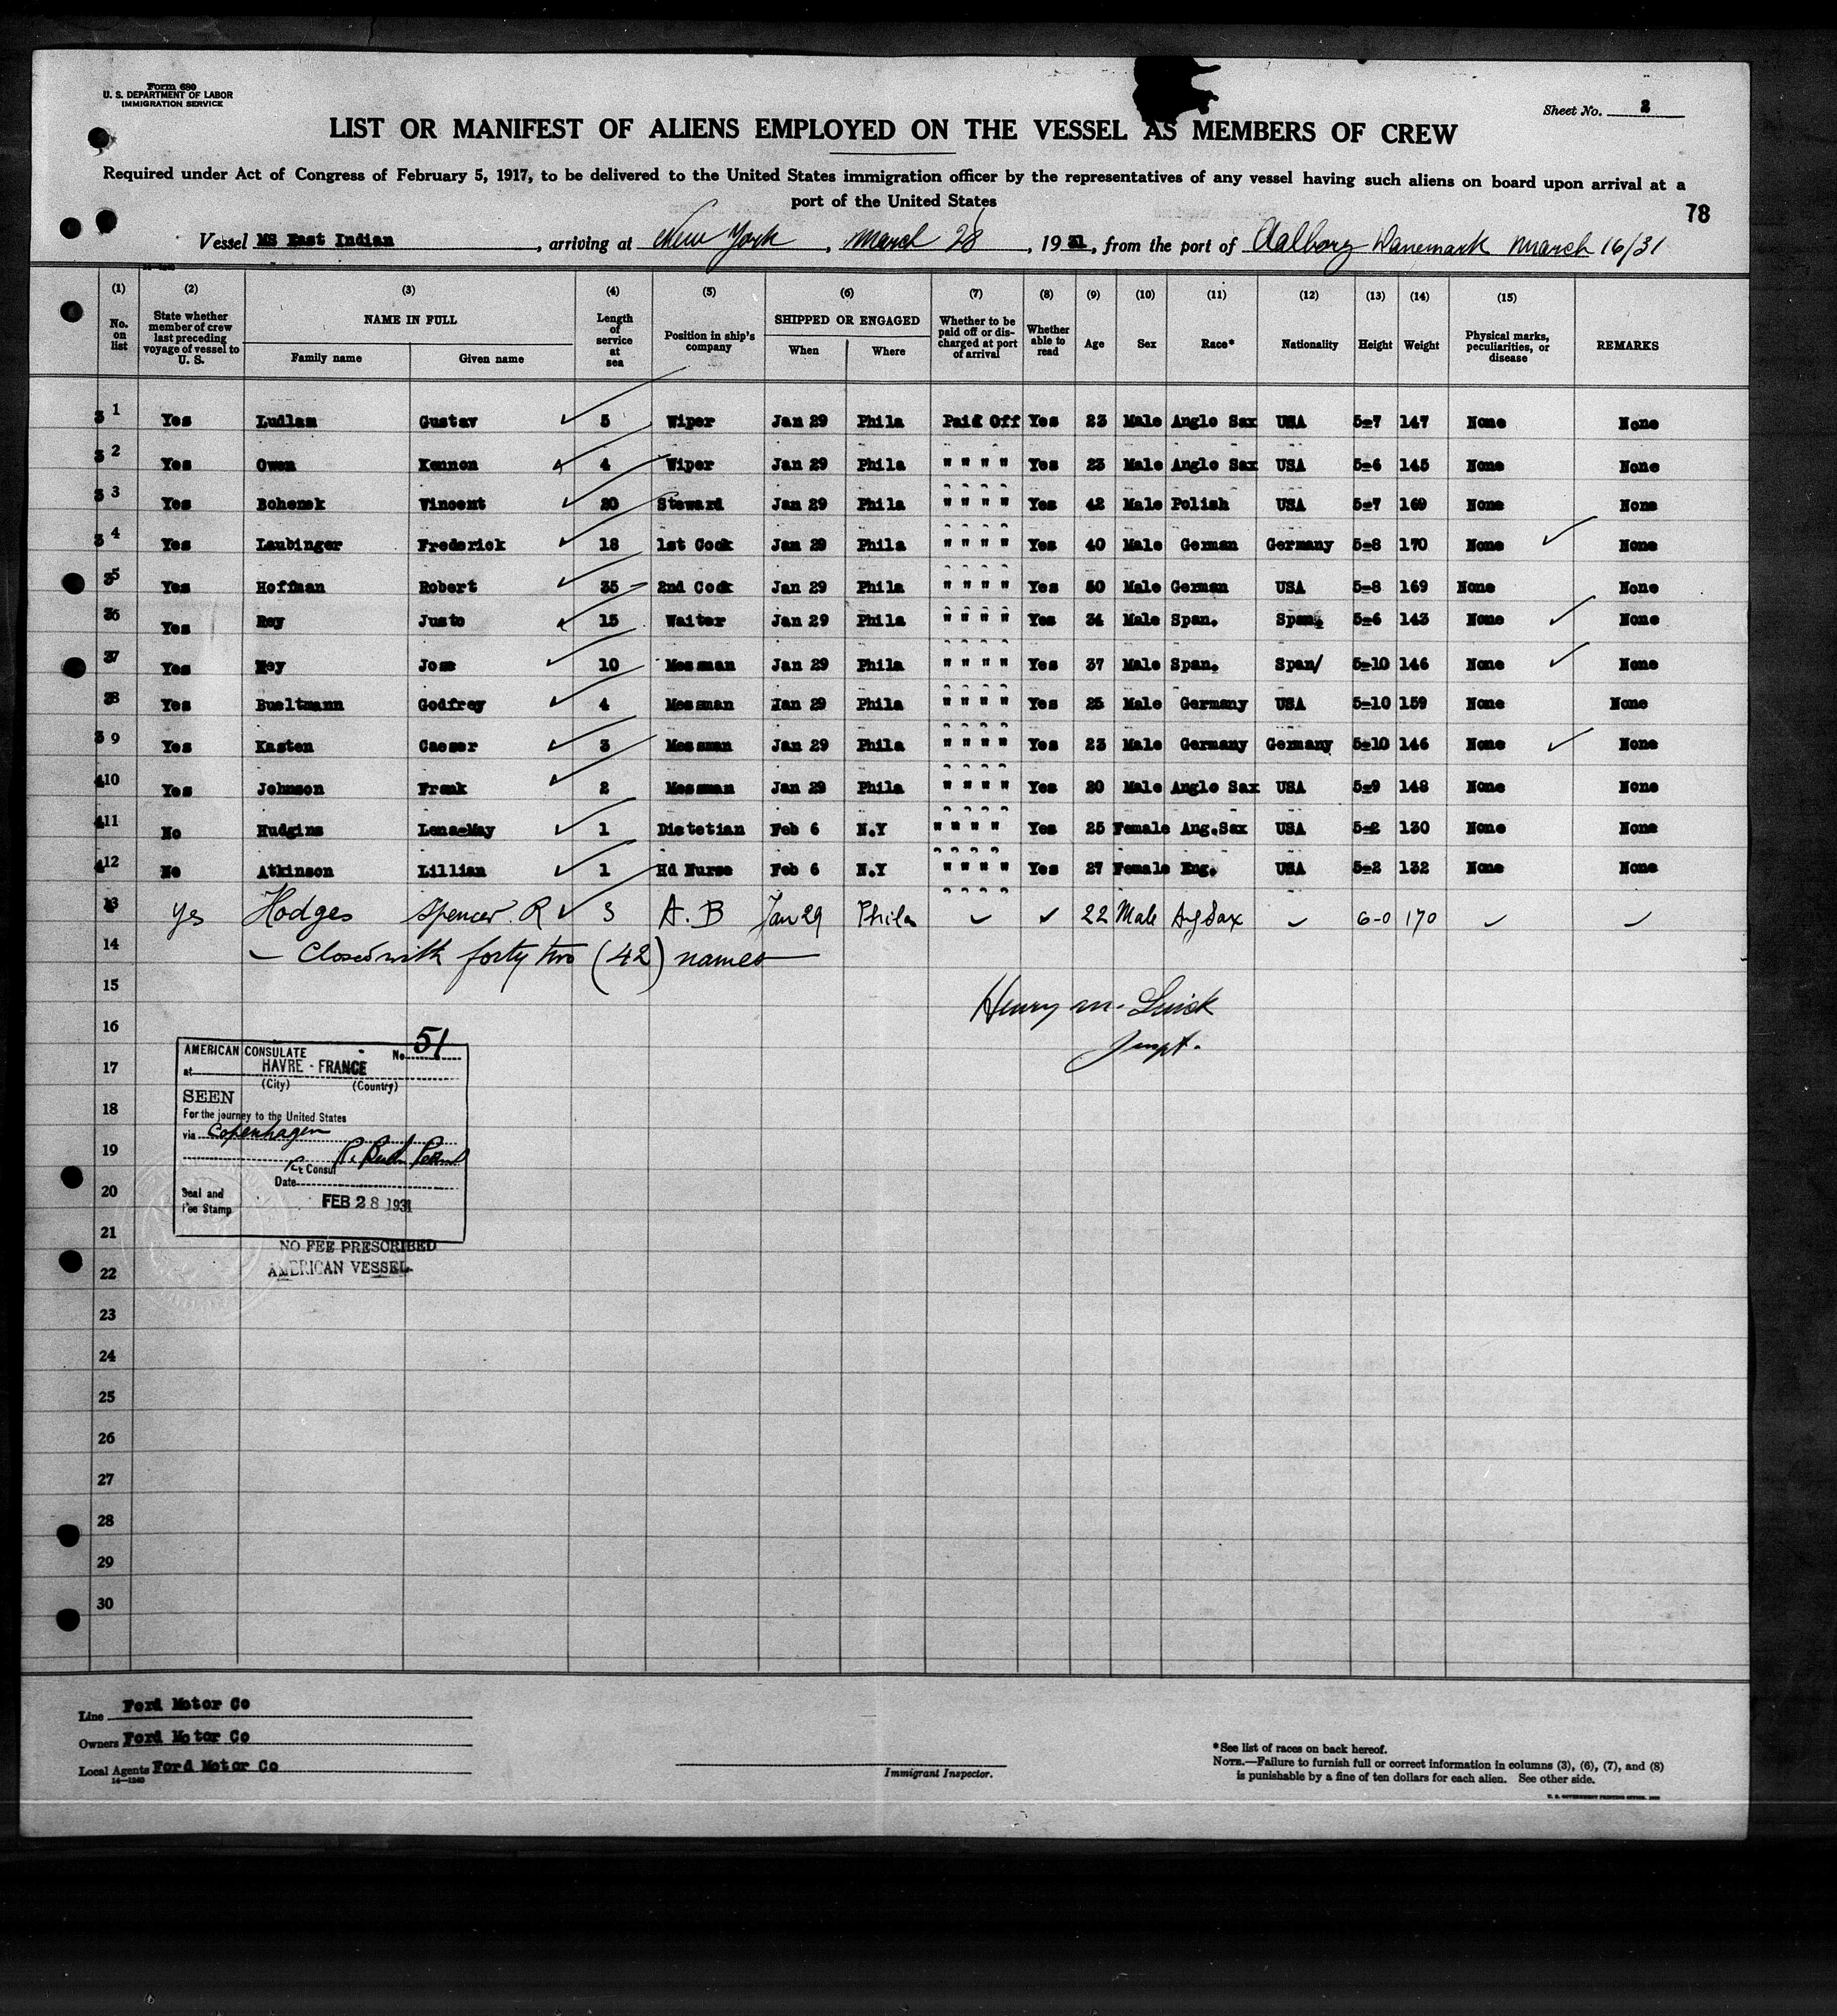 Form 680
U. S. DEPARTMENT OF LABOR
IMMIGRATION SERVICE
Sheet No. 2
LIST OR MANIFEST OF ALIENS EMPLOYED ON THE VESSEL AS MEMBERS OF CREW
Required under Act of Congress of February 5, 1917, to be delivered to the United States immigration officer by the representatives of any vessel having such aliens on board upon arrival at a
port of the United States
78
Vessel MS East Indian, arriving at New York, March 28, 1931, from the port of Aalborg Danemark March 16/31
(1) (2) (3) (4) (5) (6) (7) (8) (9) (10) (11) (12) (13) (14) (15)
No. on list State whether member of crew last preceding voyage of vessel to U. S. NAME IN FULL Family name Given name Length of service at sea Position in ship's company SHIPPED OR ENGAGED When Where Whether to be paid off or discharged at port of arrival Whether able to read Age Sex Race* Nationality Height Weight Physical marks, peculiarities, or disease REMARKS
3 1 Yes Ludlam Gustav 5 Wiper Jan 29 Phila Paid Off Yes 23 Male Anglo Sax USA 5-7 147 None None
3 2 Yes Owen Kennon 4 Wiper Jan 29 Phila " " " " Yes 23 Male Anglo Sax USA 5-6 145 None None
3 3 Yes Bohenek Vincent 20 Steward Jan 29 Phila " " " " Yes 42 Male Polish USA 5-7 169 None None
3 4 Yes Laubinger Frederick 18 1st Cook Jan 29 Phila " " " " Yes 40 Male German Germany 5-8 170 None None
3 5 Yes Hoffman Robert 35 2nd Cook Jan 29 Phila " " " " Yes 50 Male German USA 5-8 169 None None
3 6 Yes Rey Justo 15 Waiter Jan 29 Phila " " " " Yes 34 Male Span. Span. 5-6 143 None None
3 7 Yes Jose 10 Messman Jan 29 Phila " " " " Yes 37 Male Span. Span/ 5-10 146 None None
3 8 Yes Bueltmann Godfrey 4 Messman Jan 29 Phila " " " " Yes 25 Male Germany USA 5-10 159 None None
3 9 Yes Kasten Caeser 3 Messman Jan 29 Phila " " " " Yes 23 Male Germany Germany 5-10 146 None None
4 10 Yes Johnson Frank 2 Messman Jan 29 Phila " " " " Yes 20 Male Anglo Sax USA 5-9 148 None None
4 11 No Hudgins Lena-May 1 Dietetian Feb 6 N.Y " " " " Yes 25 Female Ang.Sax USA 5-2 130 None None
4 12 No Atkinson Lillian 1 Hd Nurse Feb 6 N.Y " " " " Yes 27 Female Eng. USA 5-2 132 None None
13 yes Hodges Spencer R 3 A. B Jan 29 Phila 22 Male Ang Sax 6-0 170
14 Closed with forty two (42) names
15 Henry M.
16
17
18
19
20
21
22
23
24
25
26
27
28
29
30
AMERICAN CONSULATE No. 51
at HAVRE - FRANCE
(City) (Country)
SEEN
For the journey to the United States
via Copenhagen
Consul
Date
Seal and
Fee Stamp
FEB 28 1931
NO FEE PRESCRIBED
AMERICAN VESSEL
Line Ford Motor Co
Owners Ford Motor Co
Local Agents Ford Motor Co
14—1240
Immigrant Inspector.
*See list of races on back hereof.
NOTE.—Failure to furnish full or correct information in columns (3), (6), (7), and (8)
is punishable by a fine of ten dollars for each alien. See other side.